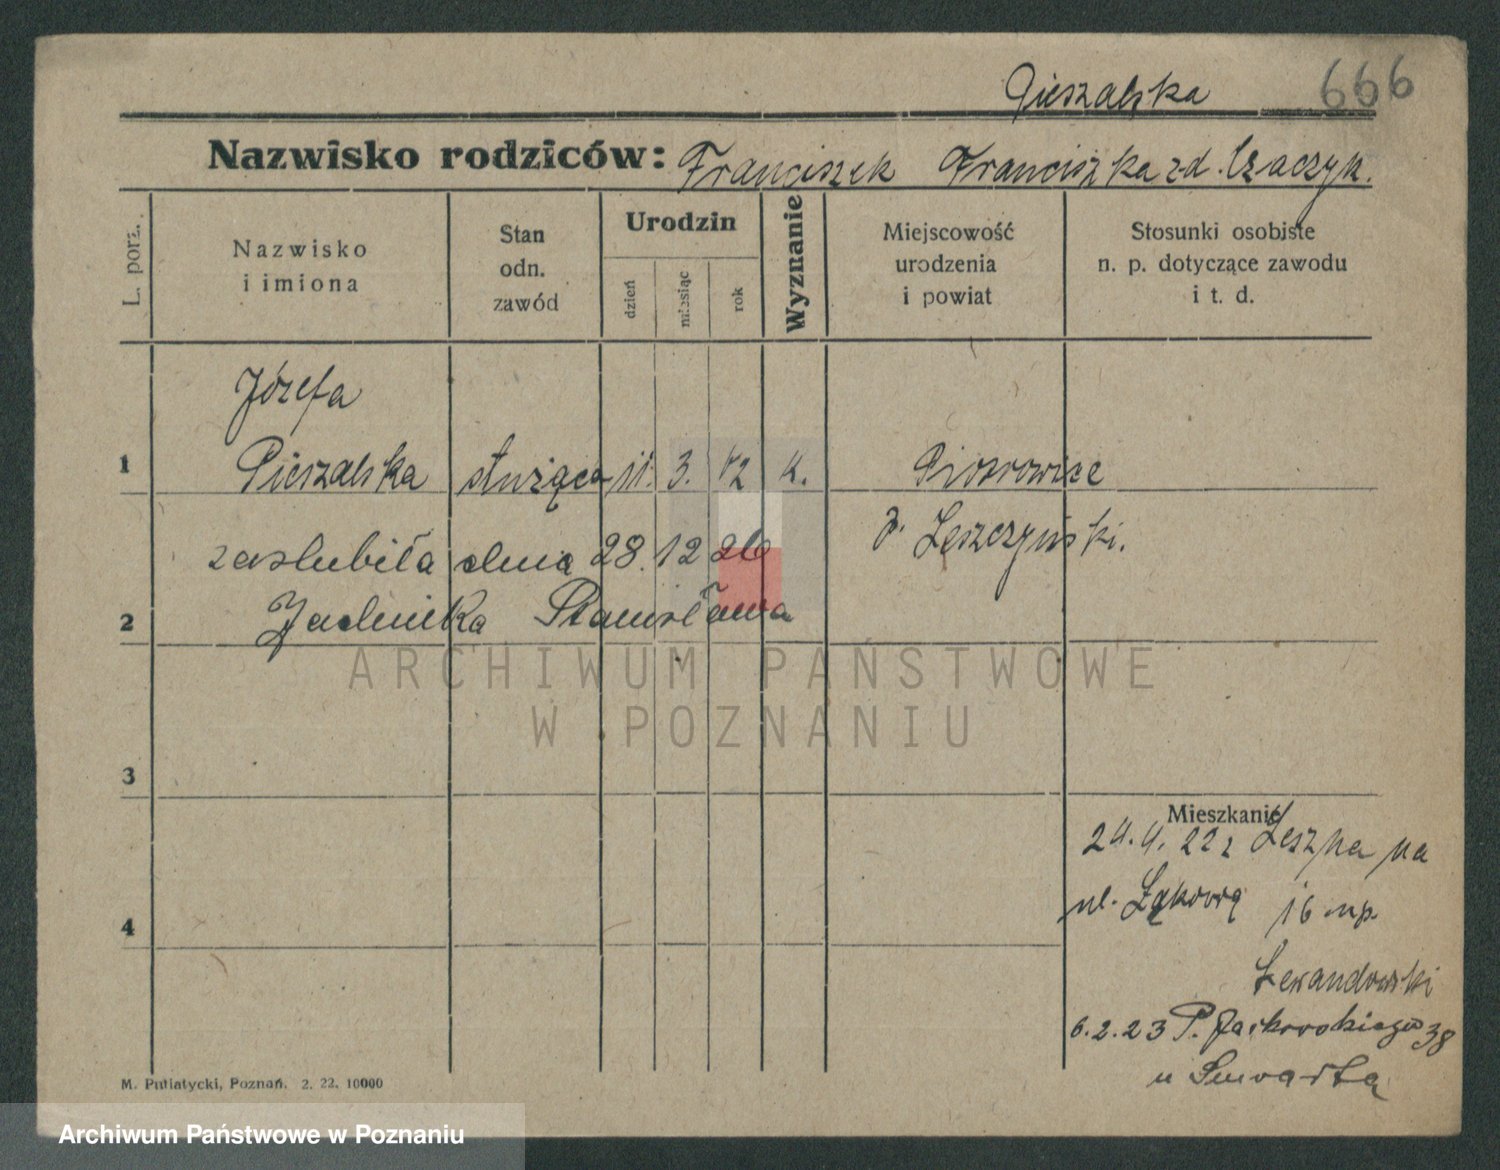 Pieszalska 666
Nazwisko rodziców: Franciszek Franciszka zd. Czaczyk.
L. porz.
Nazwisko
i imiona
Stan
odn.
zawód
Urodzin
dzień
miesiąc
rok
Wyznanie
Miejscowość
urodzenia
i powiat
Stosunki osobiste
n. p. dotyczące zawodu
i t. d.
Józefa
1 Pieszalska służąca 11. 3. k. Piotrowice
p. Leszczyński.
zaslubiła dnia 28.12 26
2 Stanisława
ARCHIWUM PAŃSTWOWE
W POZNANIU
3
Mieszkanie
24.4.22 z Leszna na
4 ul. Łąkową 16 mp
Lewandowski
6.2.23 P. Jackowskiego 38
u
M. Putiatycki, Poznań. 2. 22. 10000
Archiwum Państwowe w Poznaniu